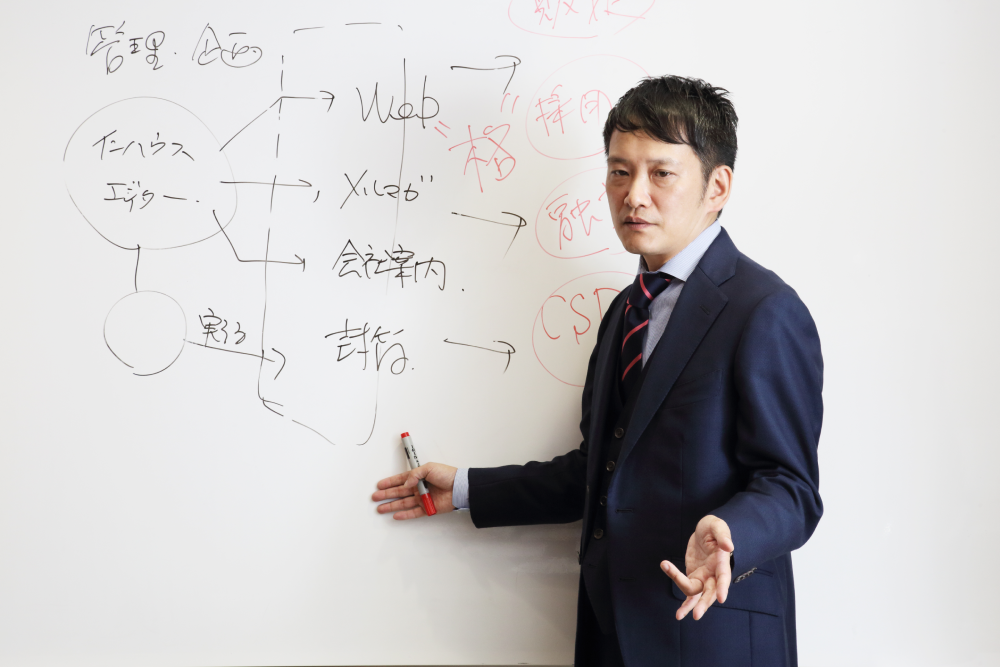 管理・企画
Web
インハウス
エディター.
"格"
採用
メルマガ
融
会社案内.
実行
封筒.
CSR